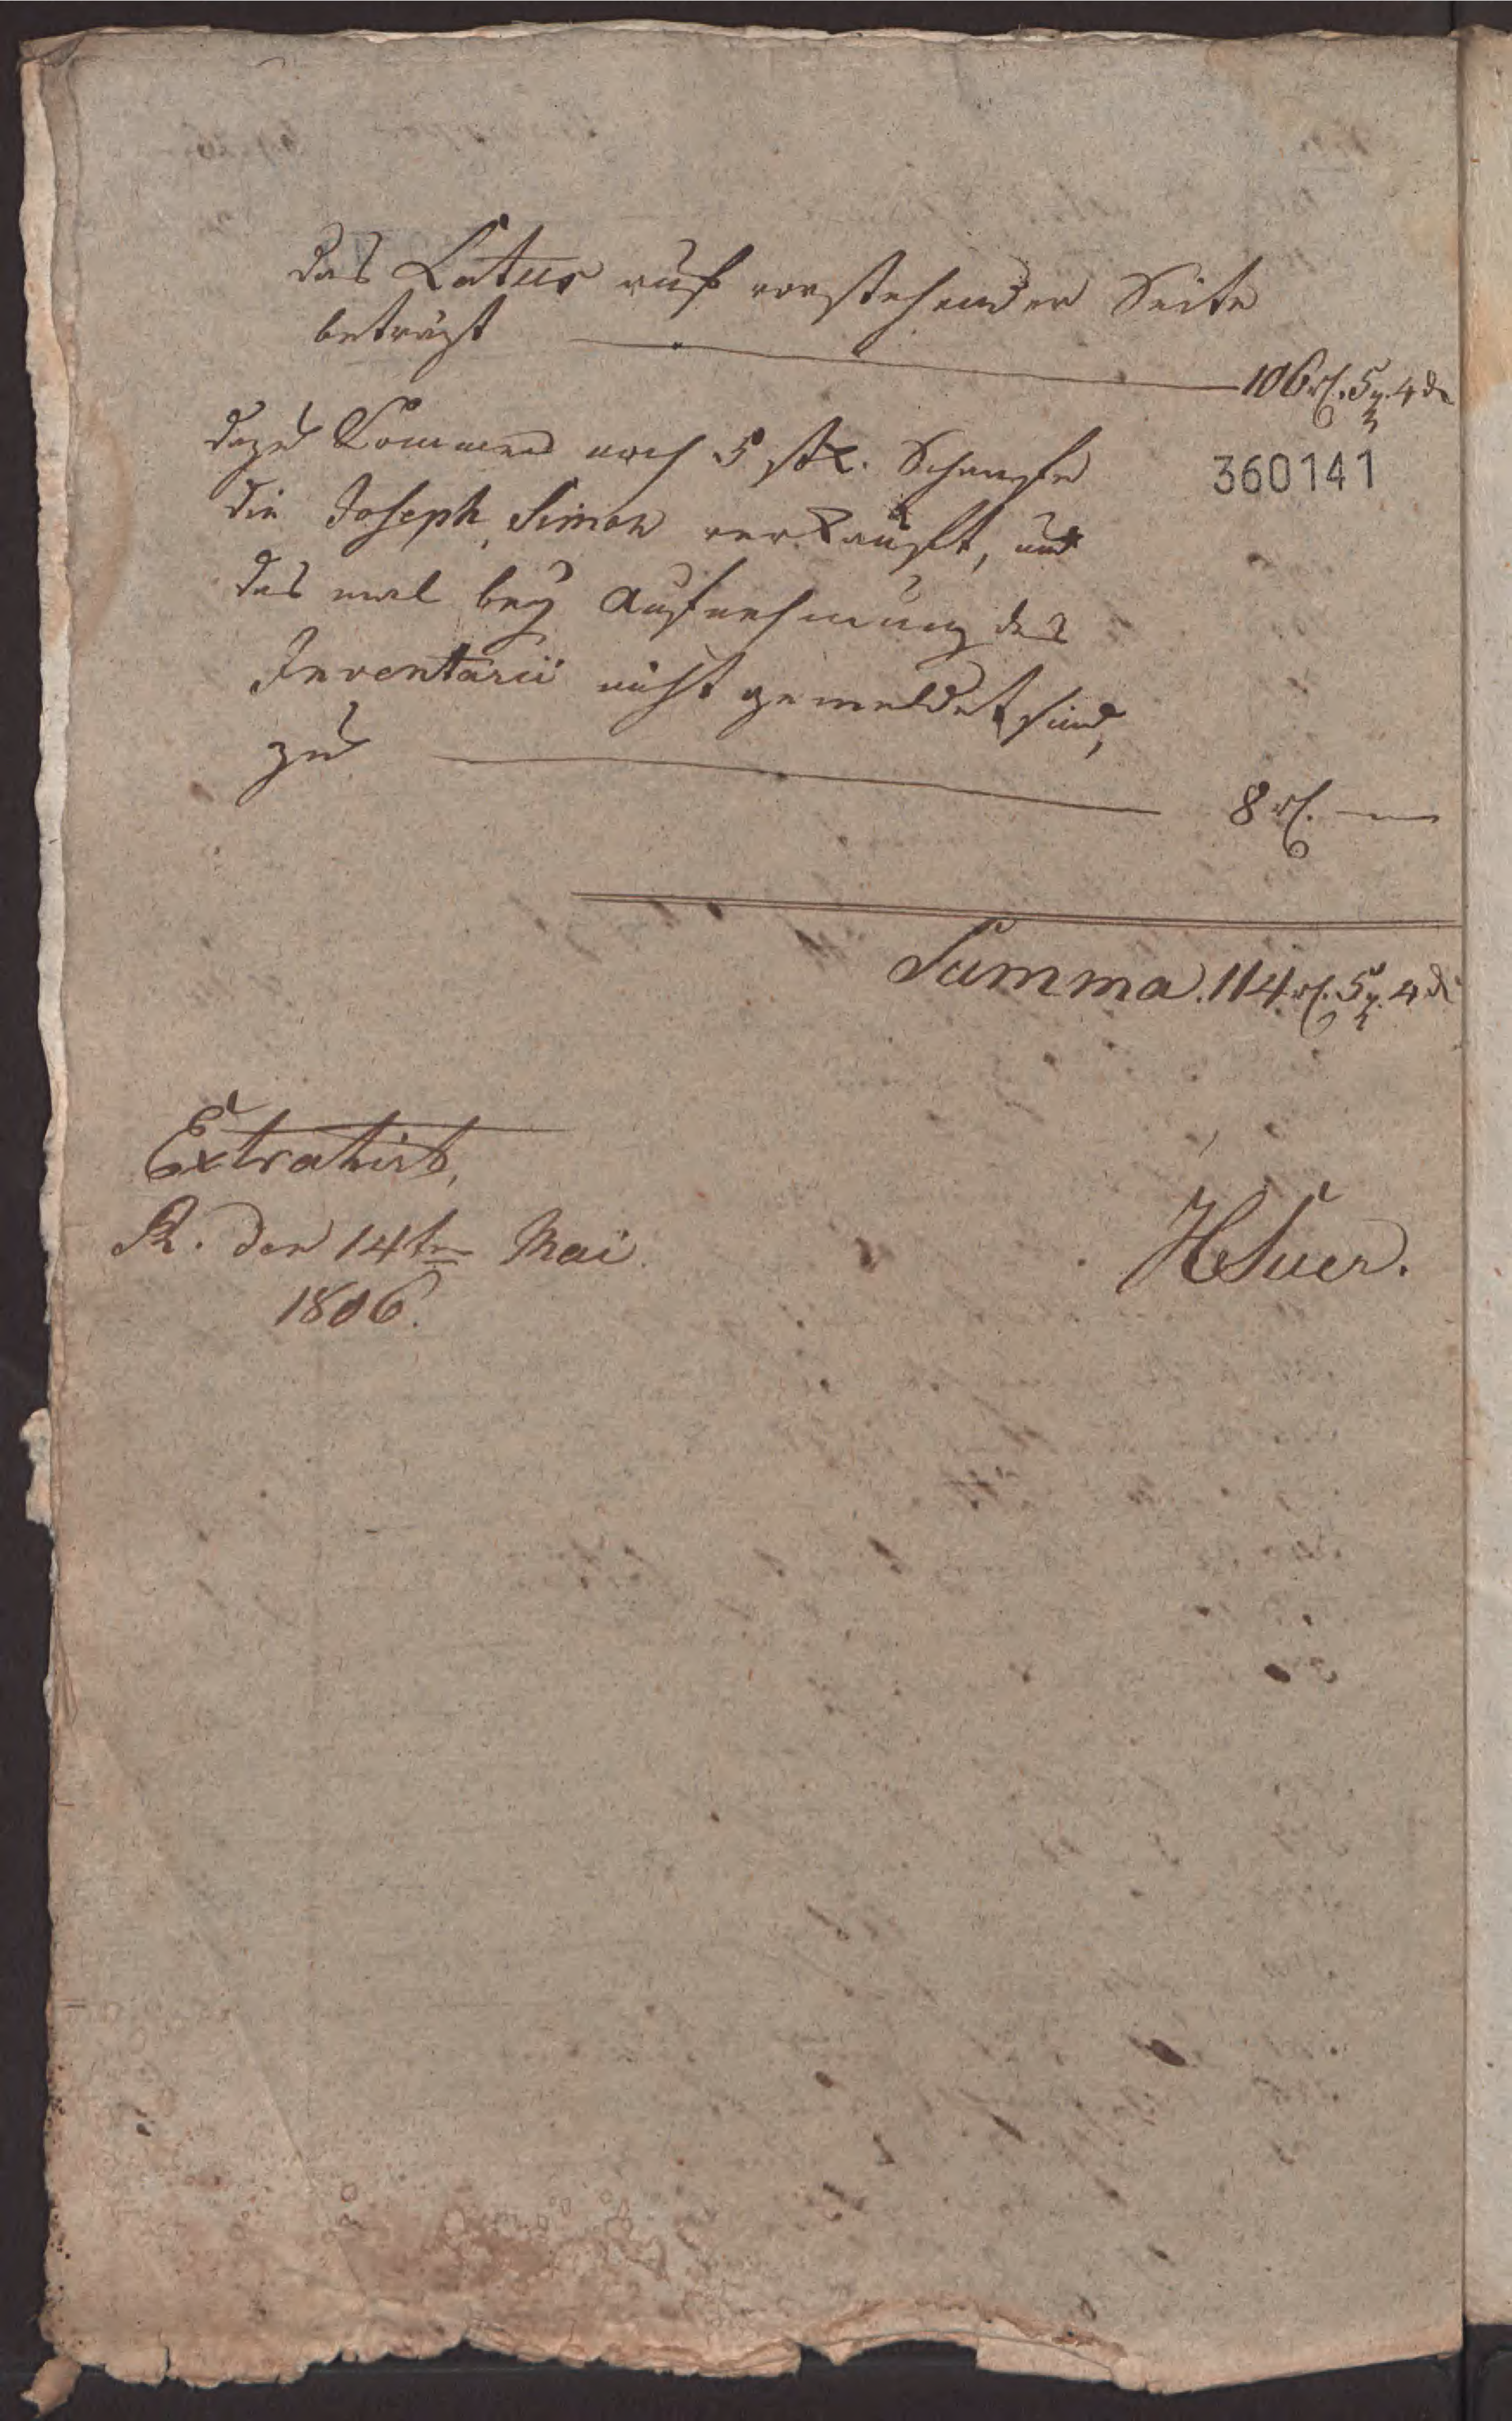 das Latus auf vorstehender Seite
beträgt — 106 rl. 5 g. 4 d
dazu kommen noch 5 stk. Schaafe
360141
die Joseph Simon verkauft, und
das mal bey Aufnehmung des
Inventarii nicht gemeldet sind,
zu — 8 rl. —
Summa. 114 rl. 5 g. 4 d
Extrahirt,
R. den 14ten Mai
1806.
HSuer.